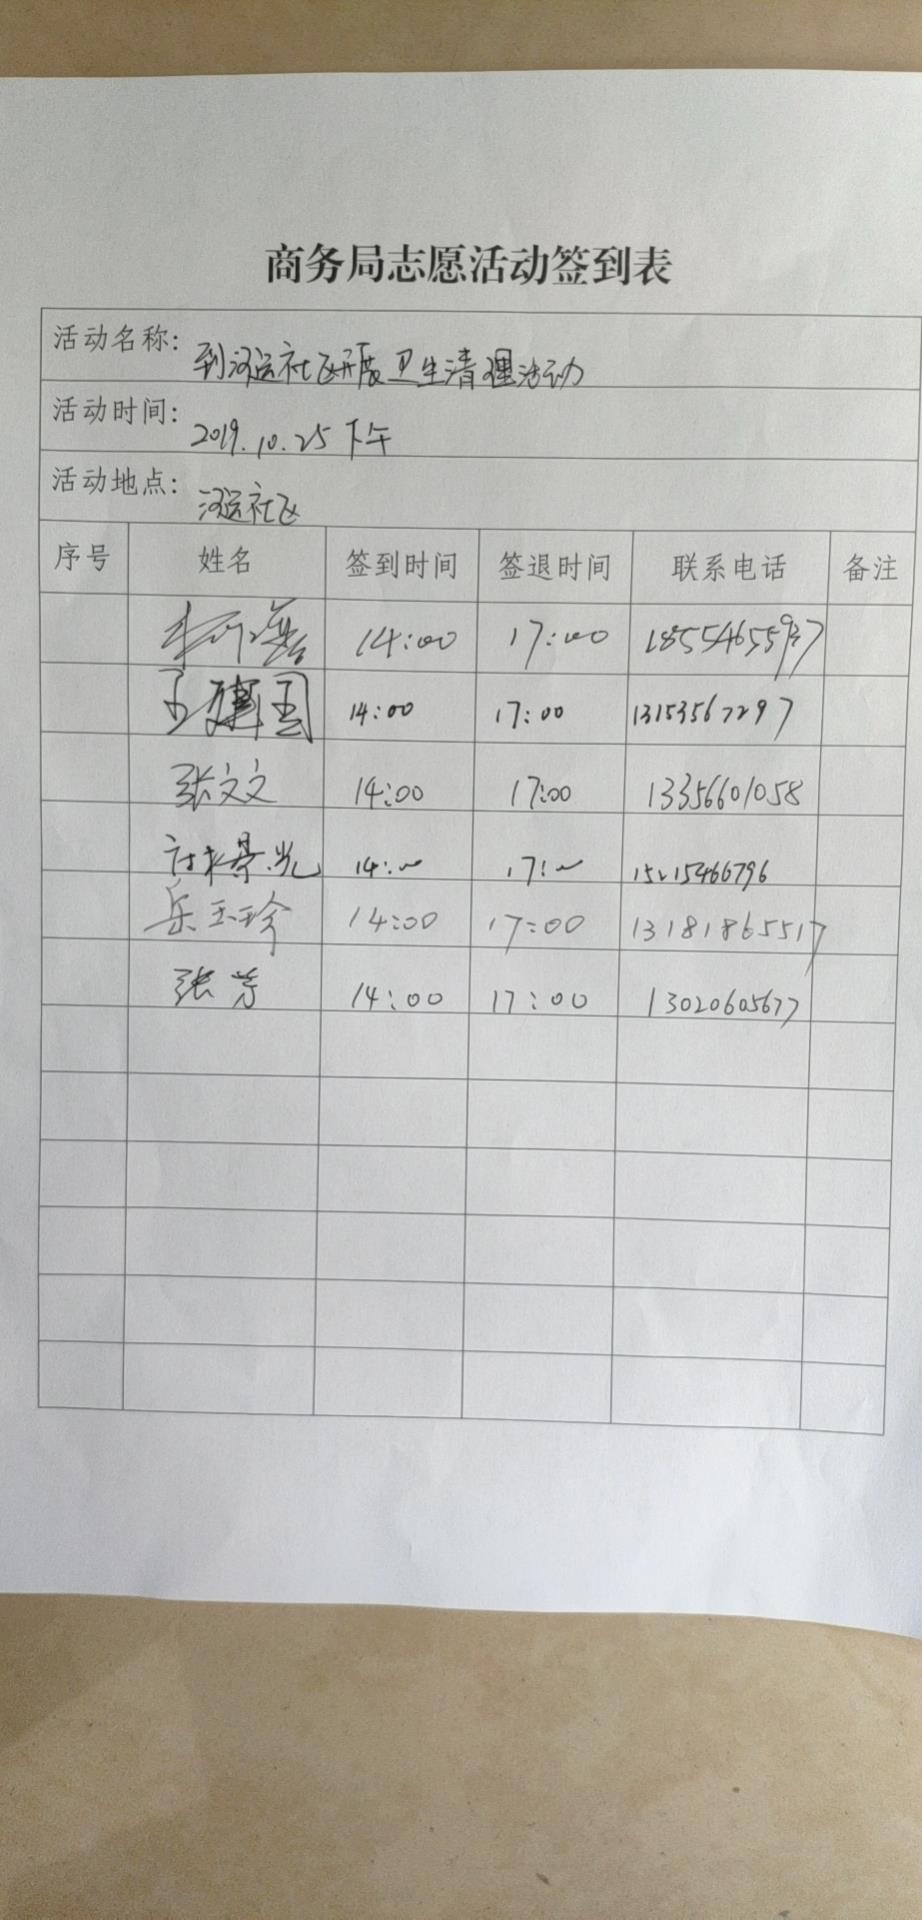 商务局志愿活动签到表
活动名称: 到河运社区开展卫生清理活动
活动时间: 2019.10.25 下午
活动地点: 河运社区
序号 姓名 签到时间 签退时间 联系电话 备注
14:00 17:00 18554655937
王建国 14:00 17:00 13153567297
张文文 14:00 17:00 13356601058
14:00 17:00 15215466796
岳玉珍 14:00 17:00 13181865517
张芳 14:00 17:00 13020605677